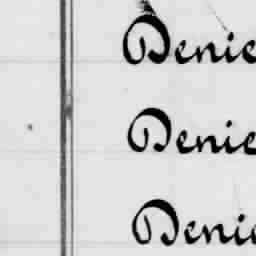 Denie
Denie
Denie